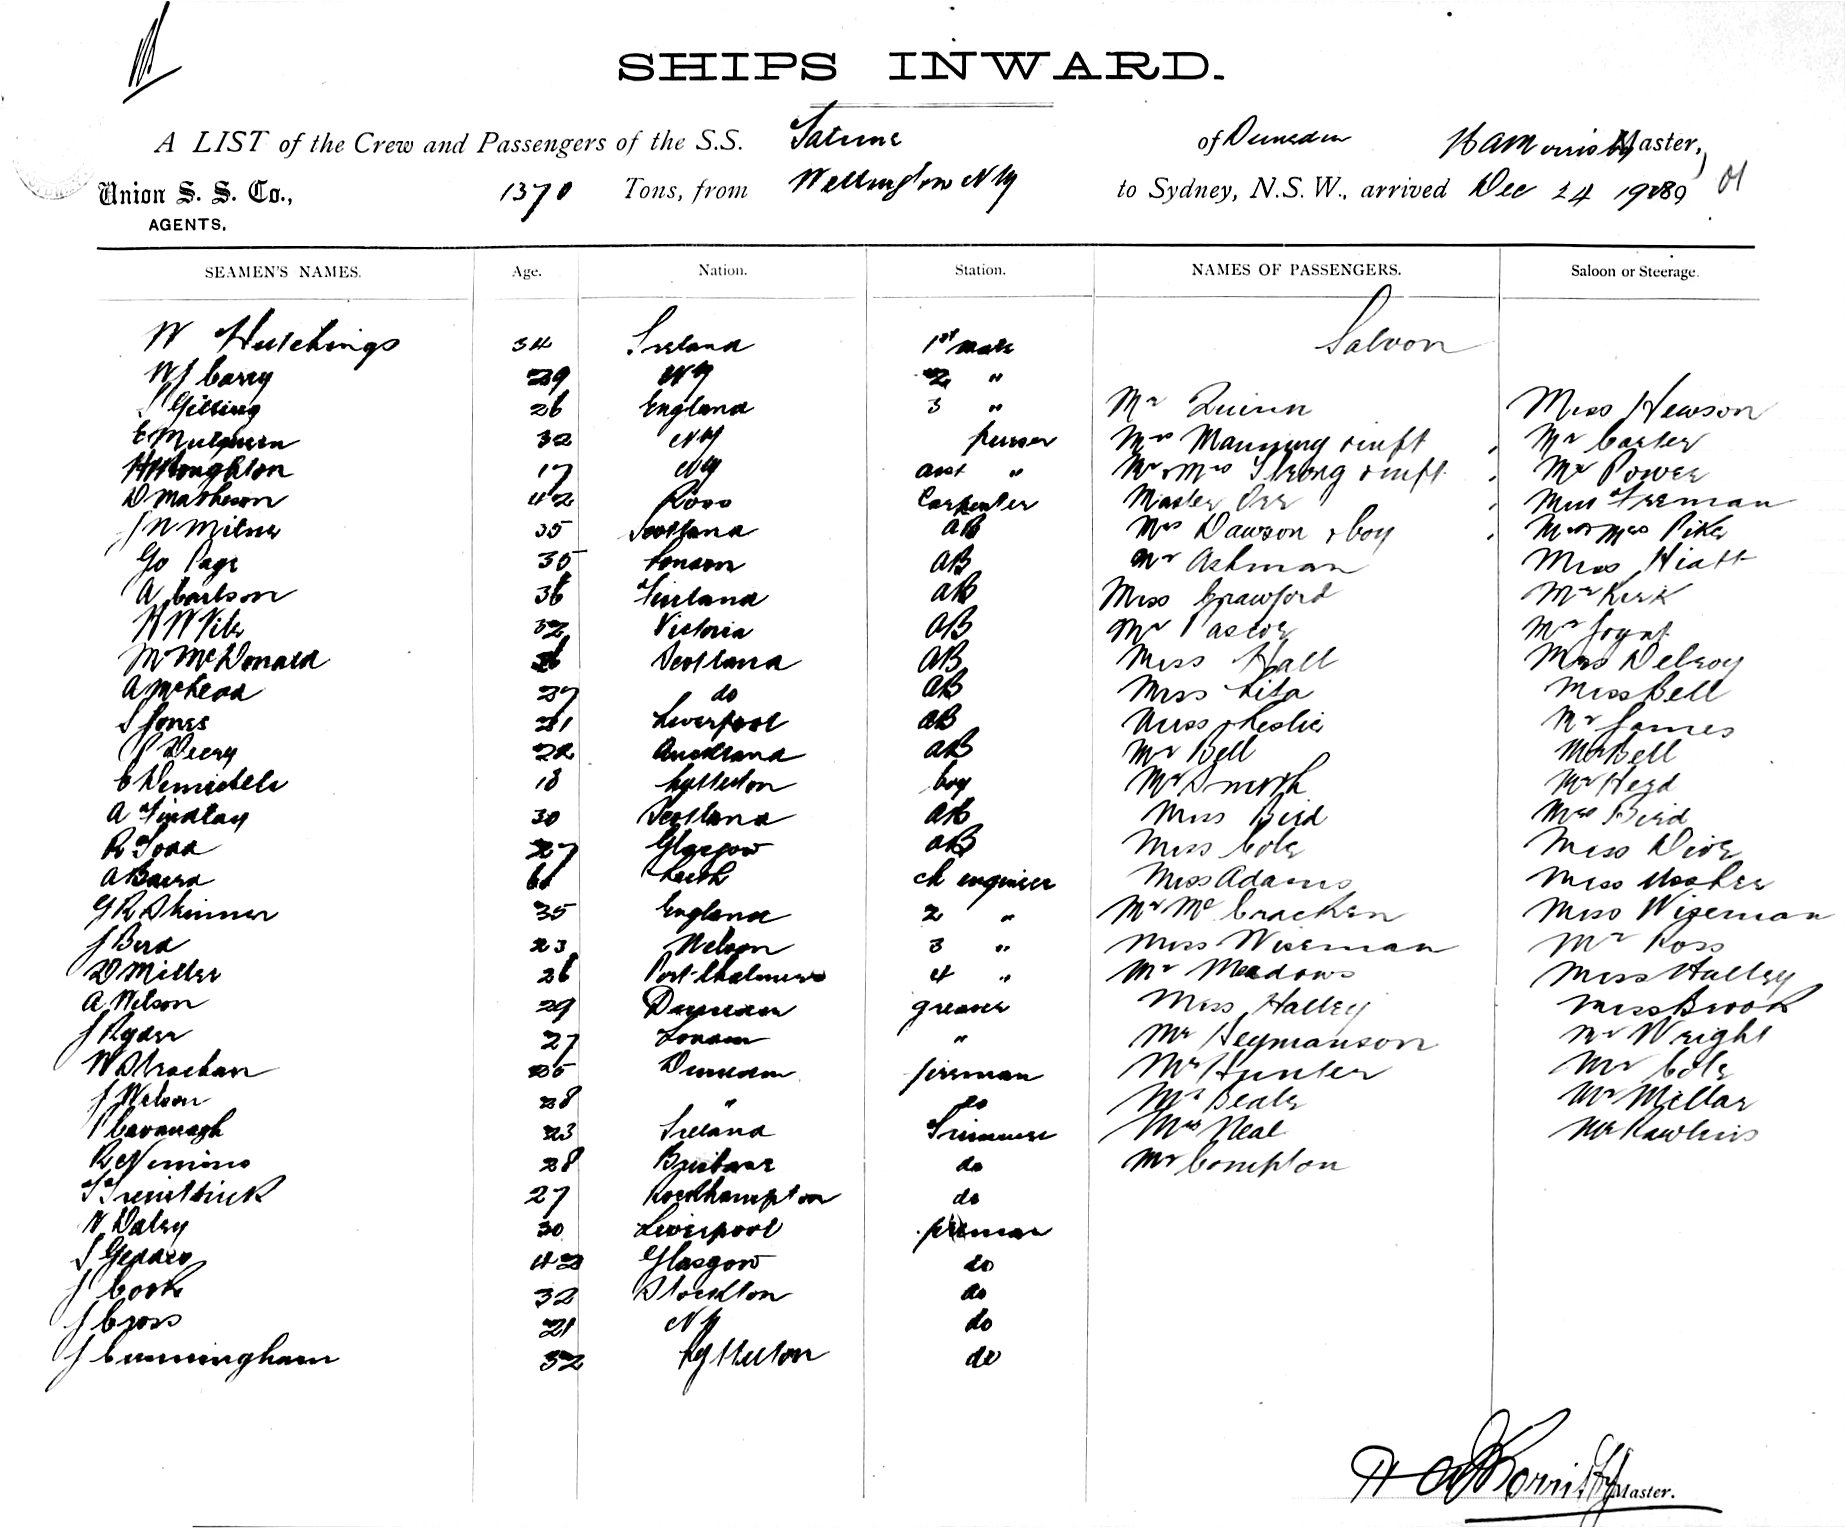 SHIPS INWARD.
A LIST of the Crew and Passengers of the S.S. of Dunedin Master,
Union S. S. Co., 1370 Tons, from Wellington NZ to Sydney, N.S.W., arrived Dec 24 1989 01
AGENTS.
SEAMEN'S NAMES. Age. Nation. Station. NAMES OF PASSENGERS. Saloon or Steerage.
W Hutchings 34 Ireland 1st mate Saloon
W J Carey 29 NZ 2 "
26 England 3 " Mr Quinn Miss Hewson
32 NZ purser Mrs Manning & inft Mr Carter
H Houghton 17 NZ asst " Mr & Mrs Strong & inft Mr Power
D Matheson 42 Ross Carpenter Master Orr Miss Freeman
J N Milne 35 Scotland AB Mrs Dawson & boy Mr & Mrs Pike
Go Page 35 London AB Mr Ashman Miss Hiatt
A Carlson 36 Finland AB Miss Crawford Mr Kirk
32 Victoria AB Mr Pascoe Mr Joynt
M McDonald Scotland AB Miss Hall Miss Delroy
A McLeod 27 do AB Miss Lila Miss Bell
S Jones 21 Liverpool AB Miss Leslie Mr James
P Deery 22 Auckland AB Mr Bell Mr Bell
18 Lyttelton boy Mr Smith Mr Herd
A Findlay 30 Scotland AB Miss Bird Mrs Bird
R Todd 27 Glasgow AB Miss Cole Miss Dive
A Baird 61 Leith ch engineer Miss Adams Miss
G R Skinner 35 England 2 " Mr McCracken Miss Wiseman
J Bird 23 Nelson 3 " Miss Wiseman Mr Ross
D Miller 26 Port Chalmers 4 " Mr Meadows Miss Halley
A Nelson 29 Dunedin greaser Miss Halley Miss Brook
J Ryder 27 London " Mr Heymanson Mr Wright
W Strachan 25 Dunedin fireman Mr Hunter Mr Cole
J Nelson 28 " do Mr Beale Mr Millar
P Cavanagh 23 Ireland Trimmer Mrs Neal Mr Rawlins
R Nimmo 28 Brisbane do Mr Compton
27 Rockhampton do
W Daley 30 Liverpool fireman
42 Glasgow do
J Cook 32 Stockton do
J Cross 21 NZ do
J Cunningham 32 Lyttelton do
Master.